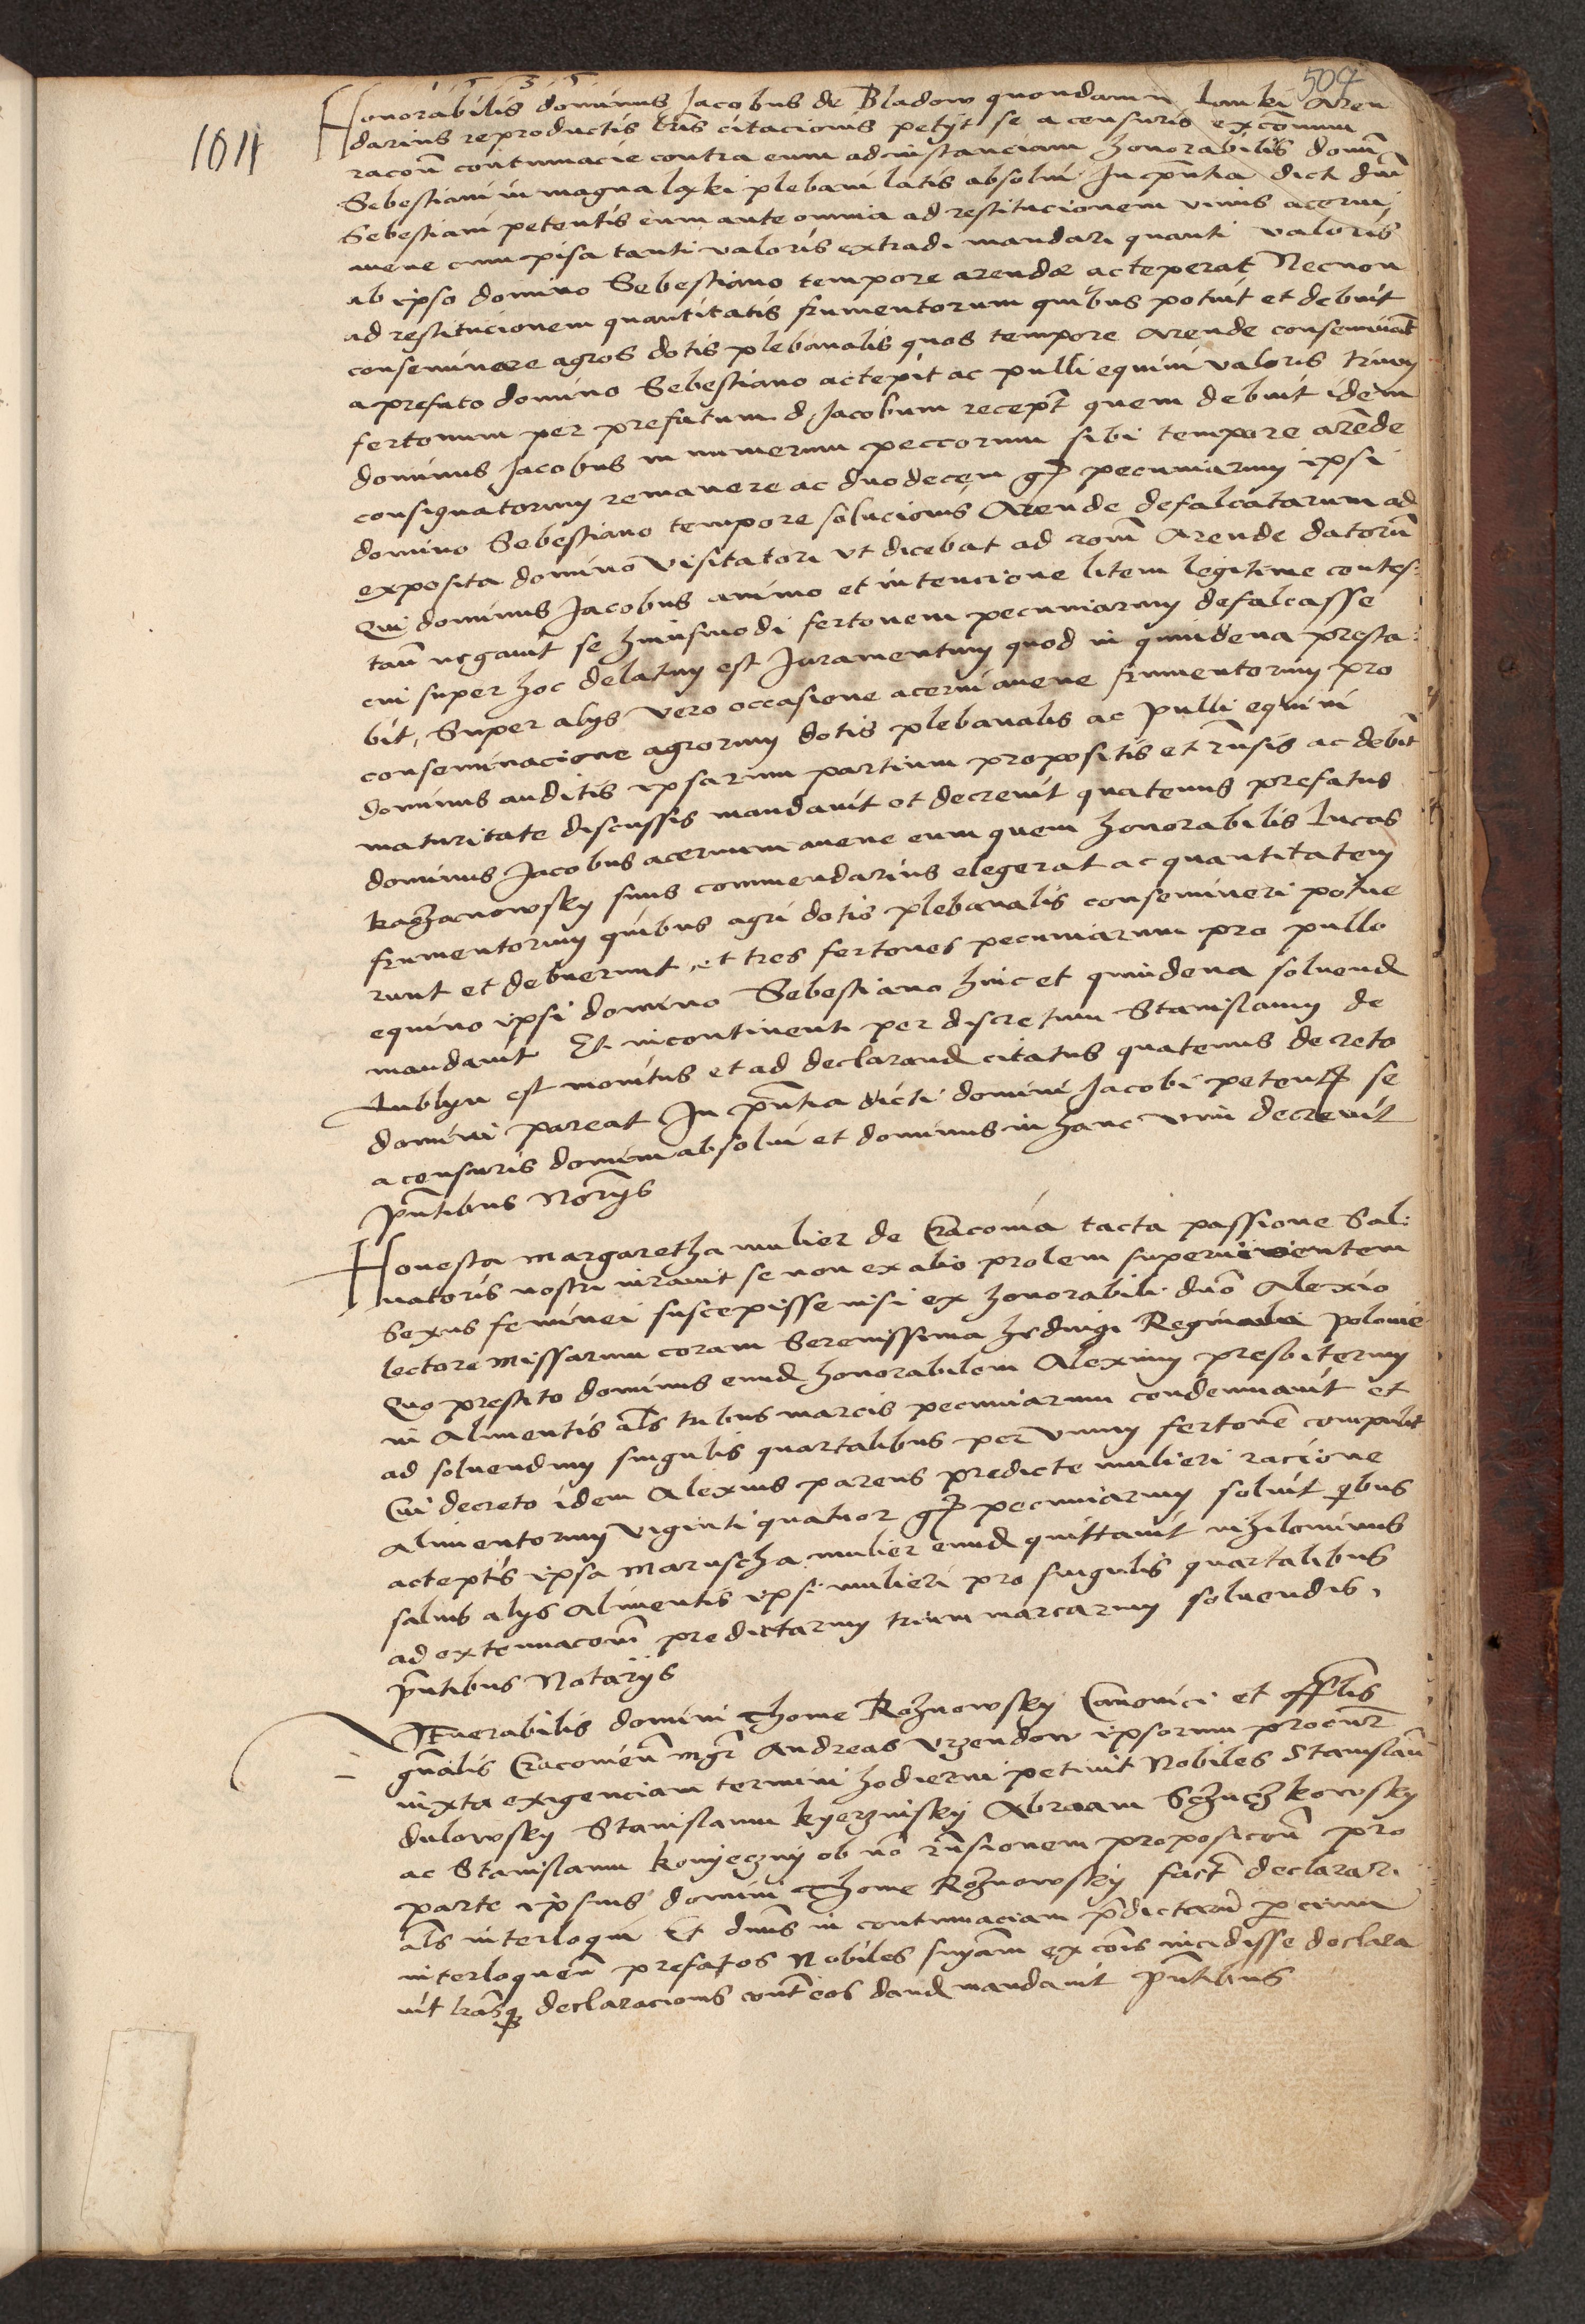 1 5 3 5
504
1011
Honorabilis dominus Jacobus de Bladow quondam in Lanki Aren
darius reproductis lris citacionis petijt se a censuris excommu
racoñ contumacie contra eum ad instanciam honorabilis domi
Sebestiani in magna laxki plebani latis absolui In pñtia dicti dñi
Sebestiani petentis eum ante omnia ad restitucionem vnius acerui
auene cum pisa tanti valoris extradi mandari quanti valoris
ab ipso domino Sebestiano tempore arendæ acceperat Necnon
ad restitucionem quantitatis frumentorum quibus potuit et debuit
conseminare agros dotis plebanalis quos tempore Arende conseminat
a prefato domino Sebestiano accepit ac pulli equini valoris trium
fertonum per prefatum d. Jacobum recept quem debuit idem
dominus Jacobus in numerum peccorum sibi tempore arende
consignatorum remanere ac duodecem gr pecuniarum ipsi
domino Sebestiano tempore solucionis Arende defalcatarum ad
exposita domino visitatori vt dicebat ad rom Arende datorum
Qui dominus Jacobus animo et intencione litem legitime contes:
tañ negauit se huiusmodi fertonem pecuniarum defalcasse
cui super hoc delatum est Juramentum quod in quindena presta:
bit, Super alijs vero occasione acerui auene frumentorum pro
conseminacione agrorum dotis plebanalis ac pulli equini
dominus auditis ipsarum partium propositis et rñsis ac debit
maturitate discussis mandauit et decreuit quatenus prefatus
dominus Jacobus aceruum auene eum quem honorabilis Lucas
kaczanowsky suus commendarius elegerat ac quantitatem
frumentorum quibus agri dotis plebanalis consemineri potue
runt et debuerunt, et tres fertones pecuniarum pro pullo
equino ipsi domino Sebestiano hinc et quindena soluend
mandauit Et incontinenti per discretum Stanislaum de
Lublyn est monitus et ad declarand citatus quatenus decreto
domini pareat In pñtia dicti domini Jacobi petent se
a censuris domini absolui et dominus in hanc vim decreuit
pñtibus Norijs
Honesta Margaretha mulier de Cracouia tacta passione Sal:
uatoris nostri iurauit se non ex alio prolem superuiuentem
Sexus feminei suscepisse nisi ex honorabili dño Alexio
lectore Missarum coram Serenissima hedwigi Reginalia polonie
Quo prestito dominus eund honorabilem Alexium presbiterum
in Alimentis als tribus marcis pecuniarum condemnauit et
ad soluendum singulis quartalibus per vnum fertonem compulit
Cui decreto idem Alexius parens predicte mulieri racione
Alimentorum viginti quatuor gr pecuniarum soluit qibus
acceptis ipsa Maruscha mulier eund quittauit nihilominus
saluis alijs Alimentis ipsi mulieri pro singulis quartalibus
ad extenuacom predictarum trium marcarum soluendis.
pñtibus Notarijs
Venerabilis domini Thome Rożnowsky Canonici et offlis
gñalis Cracouieñ mgr Andreas vrzendow ipsorum procur
iuxta exigenciam termini hodierni petiuit Nobiles Stanislau
dulowsky Stanislaum kyerzniskij Abraam Sczuczkowsky
ac Stanislaum konijecznij ob no rñsionem proposicoñ pro
parte ipsius domini Thome Rożnowsky fact declarari
als interloqui Et dñus in contumaciam pdictorũ
interloqueñ prefatos Nobiles snyam excois incidisse declara
uit lramq declaracionis cont eos dand mandauit pñtibus